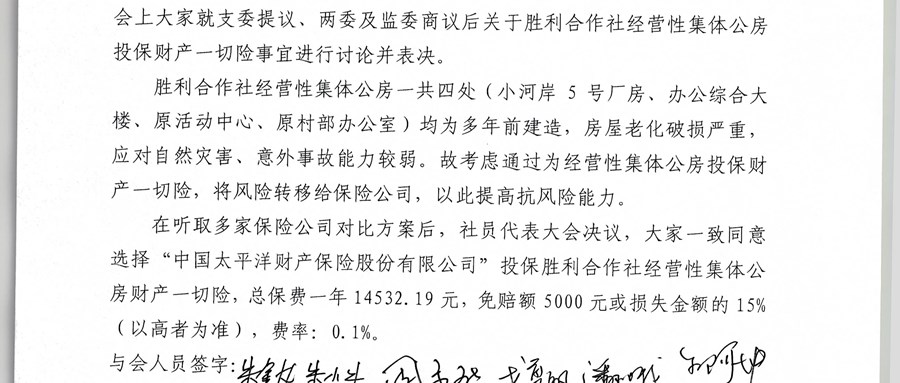 会上大家就支委提议、两委及监委商议后关于胜利合作社经营性集体公房
投保财产一切险事宜进行讨论并表决。
胜利合作社经营性集体公房一共四处（小河岸 5 号厂房、办公综合大
楼、原活动中心、原村部办公室）均为多年前建造，房屋老化破损严重，
应对自然灾害、意外事故能力较弱。故考虑通过为经营性集体公房投保财
产一切险，将风险转移给保险公司，以此提高抗风险能力。
在听取多家保险公司对比方案后，社员代表大会决议，大家一致同意
选择“中国太平洋财产保险股份有限公司”投保胜利合作社经营性集体公
房财产一切险，总保费一年 14532.19 元，免赔额 5000 元或损失金额的 15%
（以高者为准），费率：0.1%。
与会人员签字：